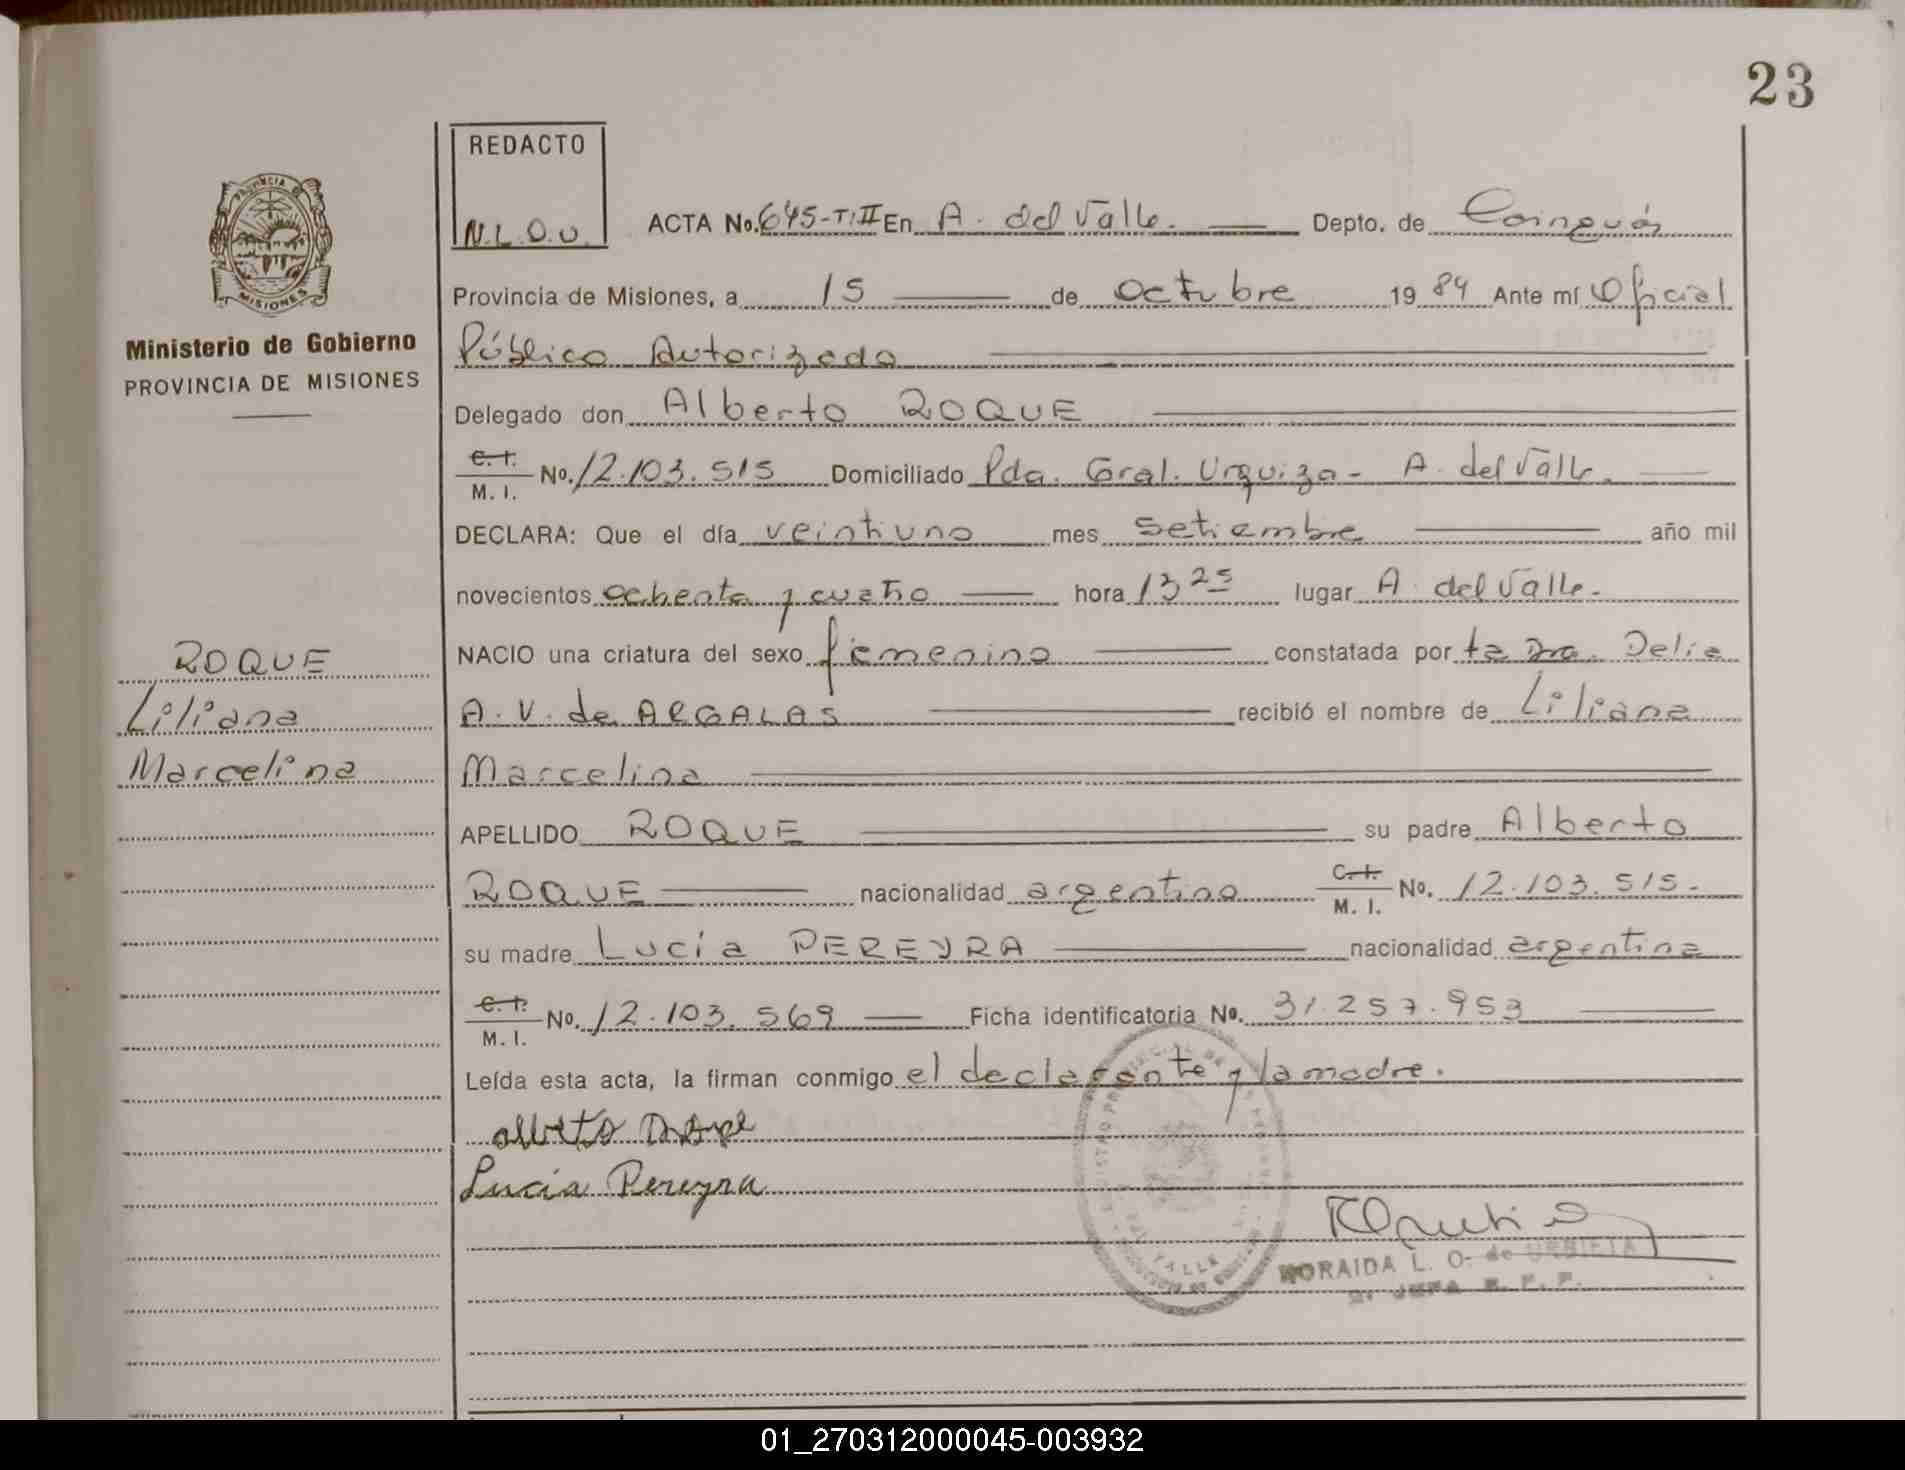 23
REDACTO
N.L.O.U.
PROVINCIA DE
MISIONES
Ministerio de Gobierno
PROVINCIA DE MISIONES
ACTA No. 645-T:II En A. del Valle. Depto. de Cainguás
Provincia de Misiones, a 15 de octubre 19 84 Ante mí Oficial
Público Autorizado
Delegado don Alberto ROQUE
C. I.
M. I. No. 12.103.515 Domiciliado Pda. Gral. Urquiza - A. del Valle.
DECLARA: Que el día veintiuno mes setiembre año mil
novecientos ochenta y cuatro hora 13 25 lugar A. del Valle.
ROQUE
Liliana
Marcelina
NACIO una criatura del sexo femenino constatada por la Dra. Delia
A. V. de ARGALAS recibió el nombre de Liliana
Marcelina
APELLIDO ROQUE su padre Alberto
ROQUE nacionalidad argentino C. I.
M. I. No. 12.103.515.
su madre Lucía PEREYRA nacionalidad argentina
C. I.
M. I. No. 12.103.569 Ficha identificatoria No. 31.257.953
Leída esta acta, la firman conmigo el declarante y la madre.
alberto
Lucía Pereyra
NORAIDA L. O. de URBIETA
01_270312000045-003932